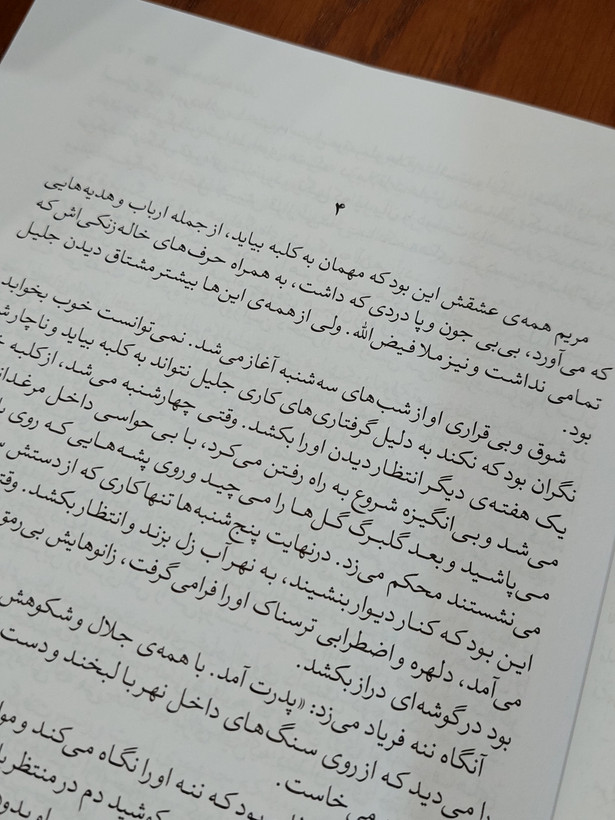 ۴
مریم همه‌ی عشقش این بود که مهمان به کلبه بیاید، از جمله ارباب و هدیه‌هایی
که می‌آورد، بی‌بی جون و پا دردی که داشت، به همراه حرف‌های خاله‌زنکی‌اش که
تمامی نداشت و نیز ملا فیض‌الله. ولی از همه‌ی این‌ها بیشتر مشتاق دیدن جلیل
بود.
شوق و بی‌قراری او از شب‌های سه‌شنبه آغاز می‌شد. نمی‌توانست خوب بخوابد
نگران بود که نکند به دلیل گرفتاری‌های کاری جلیل نتواند به کلبه بیاید و ناچار
یک هفته‌ی دیگر انتظار دیدن او را بکشد. وقتی چهارشنبه می‌شد، از کلبه
می‌شد و بی‌انگیزه شروع به راه رفتن می‌کرد، با بی‌حواسی داخل
می‌پاشید و بعد گلبرگ گل‌ها را می‌چید و روی پشه‌هایی که روی
می‌نشستند محکم می‌زد. درنهایت پنج‌شنبه‌ها تنها کاری که از دستش
این بود که کنار دیوار بنشیند، به نهر آب زل بزند و انتظار بکشد.
می‌آمد، دلهره و اضطرابی ترسناک او را فرامی‌گرفت، زانوهایش
بود در گوشه‌ای دراز بکشد.
آنگاه ننه فریاد می‌زد: «پدرت آمد. با همه‌ی جلال و شکوهش
را می‌دید که از روی سنگ‌های داخل نهر با لبخند و دست
می‌خاست.
بود که ننه او را نگاه می‌کند و
کوشید دم در منتظر